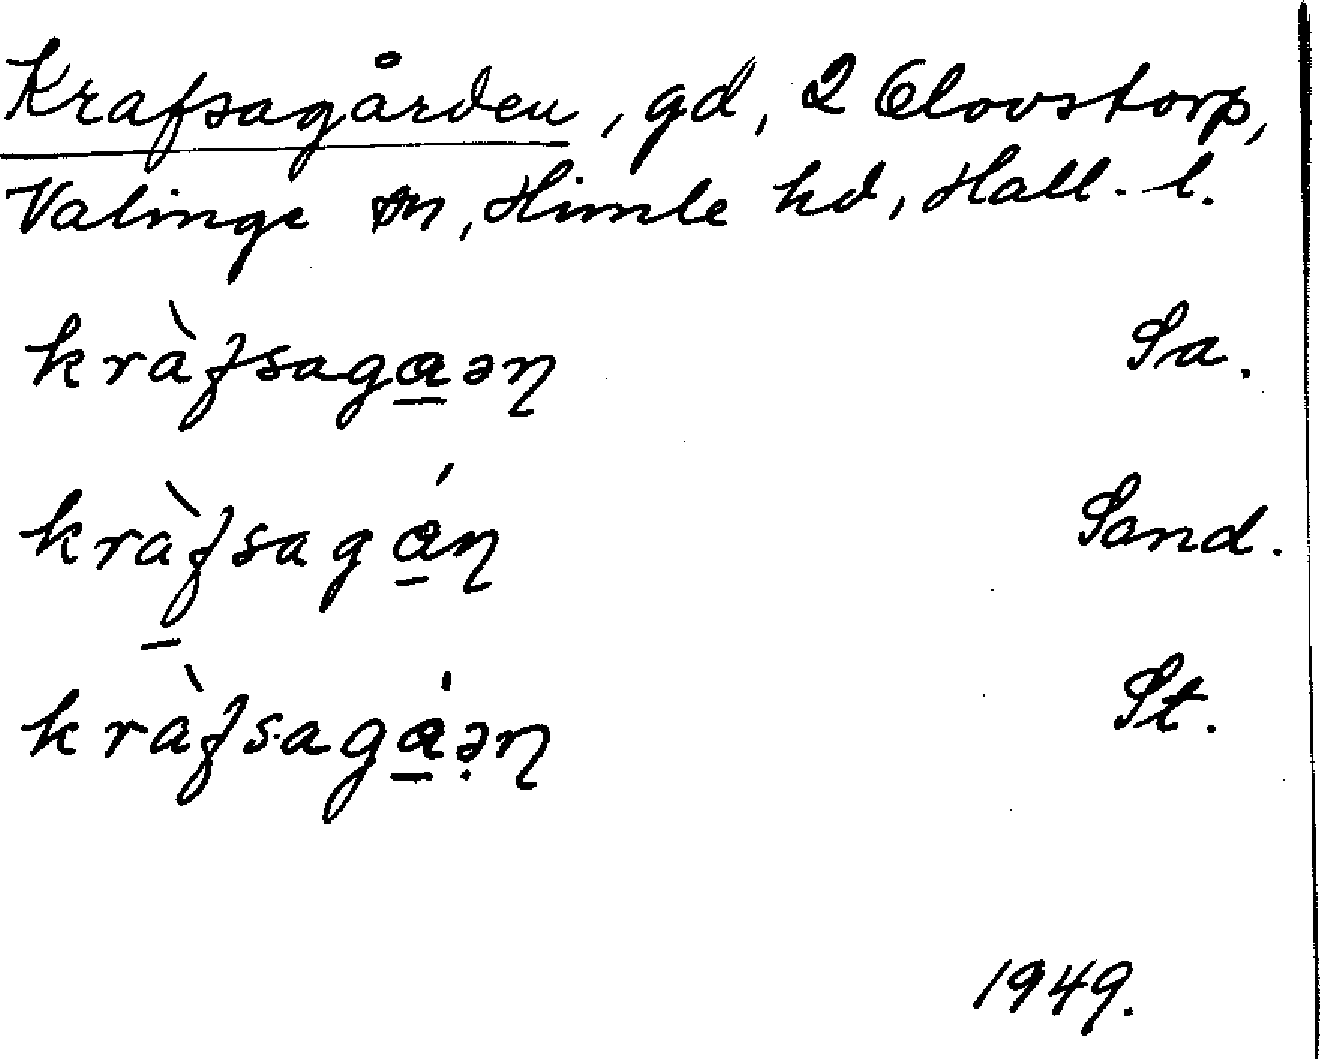 Krafsagården, gd, 2 Olovstorp,
Valinge sn, Himle hd, Hall. l.
kràfsaga̲ən Sa.
krà̲fsagá̲n Sand.
kràfsagá̲ə̣n St.
1949.